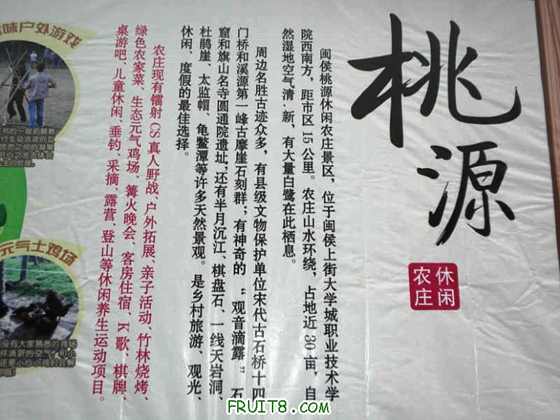 桃源
休闲
农庄
闽侯桃源休闲农庄景区，位于闽侯上街大学城职业技术学
院西南方，距市区15公里。农庄山水环绕，占地近30亩，自
然湿地空气清.新，有大量白鹭在此栖息。
周边名胜古迹众多，有县级文物保护单位宋代古石桥十四
门桥和溪源第一峰古摩崖石刻群；有神奇的“观音滴露”石
窟和旗山名寺圆通院遗址；还有半月沉江、棋盘石、一线天岩洞、
杜鹃崖、太监帽、龟鳖潭等许多天然景观。是乡村旅游、观光、
休闲、度假的最佳选择。
农庄现有镭射CS真人野战、户外拓展、亲子活动、竹林烧烤、
绿色农家菜、生态元气鸡场、篝火晚会、客房住宿、K歌、棋牌、
桌游吧、儿童休闲、垂钓、采摘、露营、登山等休闲养生运动项目。
味户外游戏
元气土鸡场
FRUIT8.COM